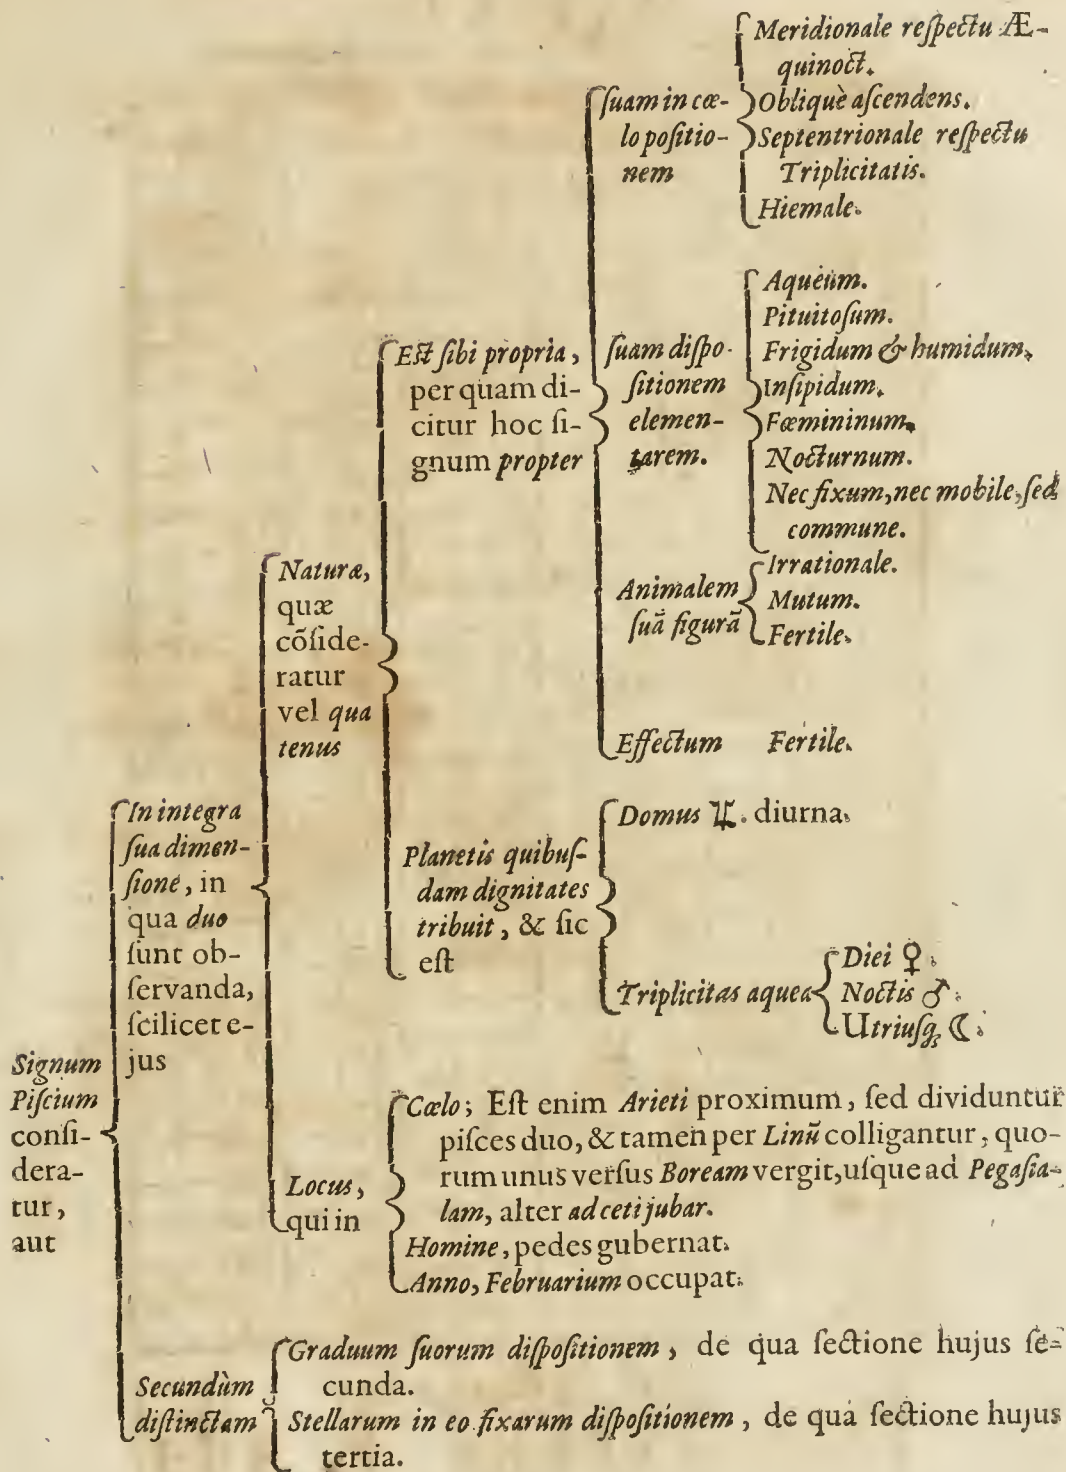 Signum
Piſcium
conſi-
dera-
tur,
aut
In integra
ſua dimen-
ſione, in
qua duo
ſunt ob-
ſervanda,
ſcilicet e-
jus
Naturæ,
quæ
cõſide-
ratur
vel qua
tenus
Eſt ſibi propria,
per quam di-
citur hoc ſi-
gnum propter
ſuam in cœ-
lo poſitio-
nem
Meridionale reſpectu Æ-
quinoct.
Obliquè aſcendens.
Septentrionale reſpectu
Triplicitatis.
Hiemale.
ſuam diſpo-
ſitionem
elemen-
tarem.
Aqueum.
Pituitoſum.
Frigidum & humidum.
Inſipidum.
Fœmininum.
Nocturnum.
Nec fixum, nec mobile, ſed
commune.
Animalem
ſuã figurã
Irrationale.
Mutum.
Fertile.
Effectum Fertile.
Planetis quibuſ-
dam dignitates
tribuit, & ſic
eſt
Domus ♃. diurna.
Triplicitas aquea
Diei ♀.
Noctis ♂.
Utriuſq; ☾.
Locus,
qui in
Cœlo; Eſt enim Arieti proximum, ſed dividuntur
piſces duo, & tamen per Linũ colligantur, quo-
rum unus verſus Boream vergit, uſque ad Pegaſi a-
lam, alter ad ceti jubar.
Homine, pedes gubernat.
Anno, Februarium occupat.
Secundùm
diſtinctam
Graduum ſuorum diſpoſitionem, de qua ſectione hujus ſe-
cunda.
Stellarum in eo fixarum diſpoſitionem, de qua ſectione hujus
tertia.